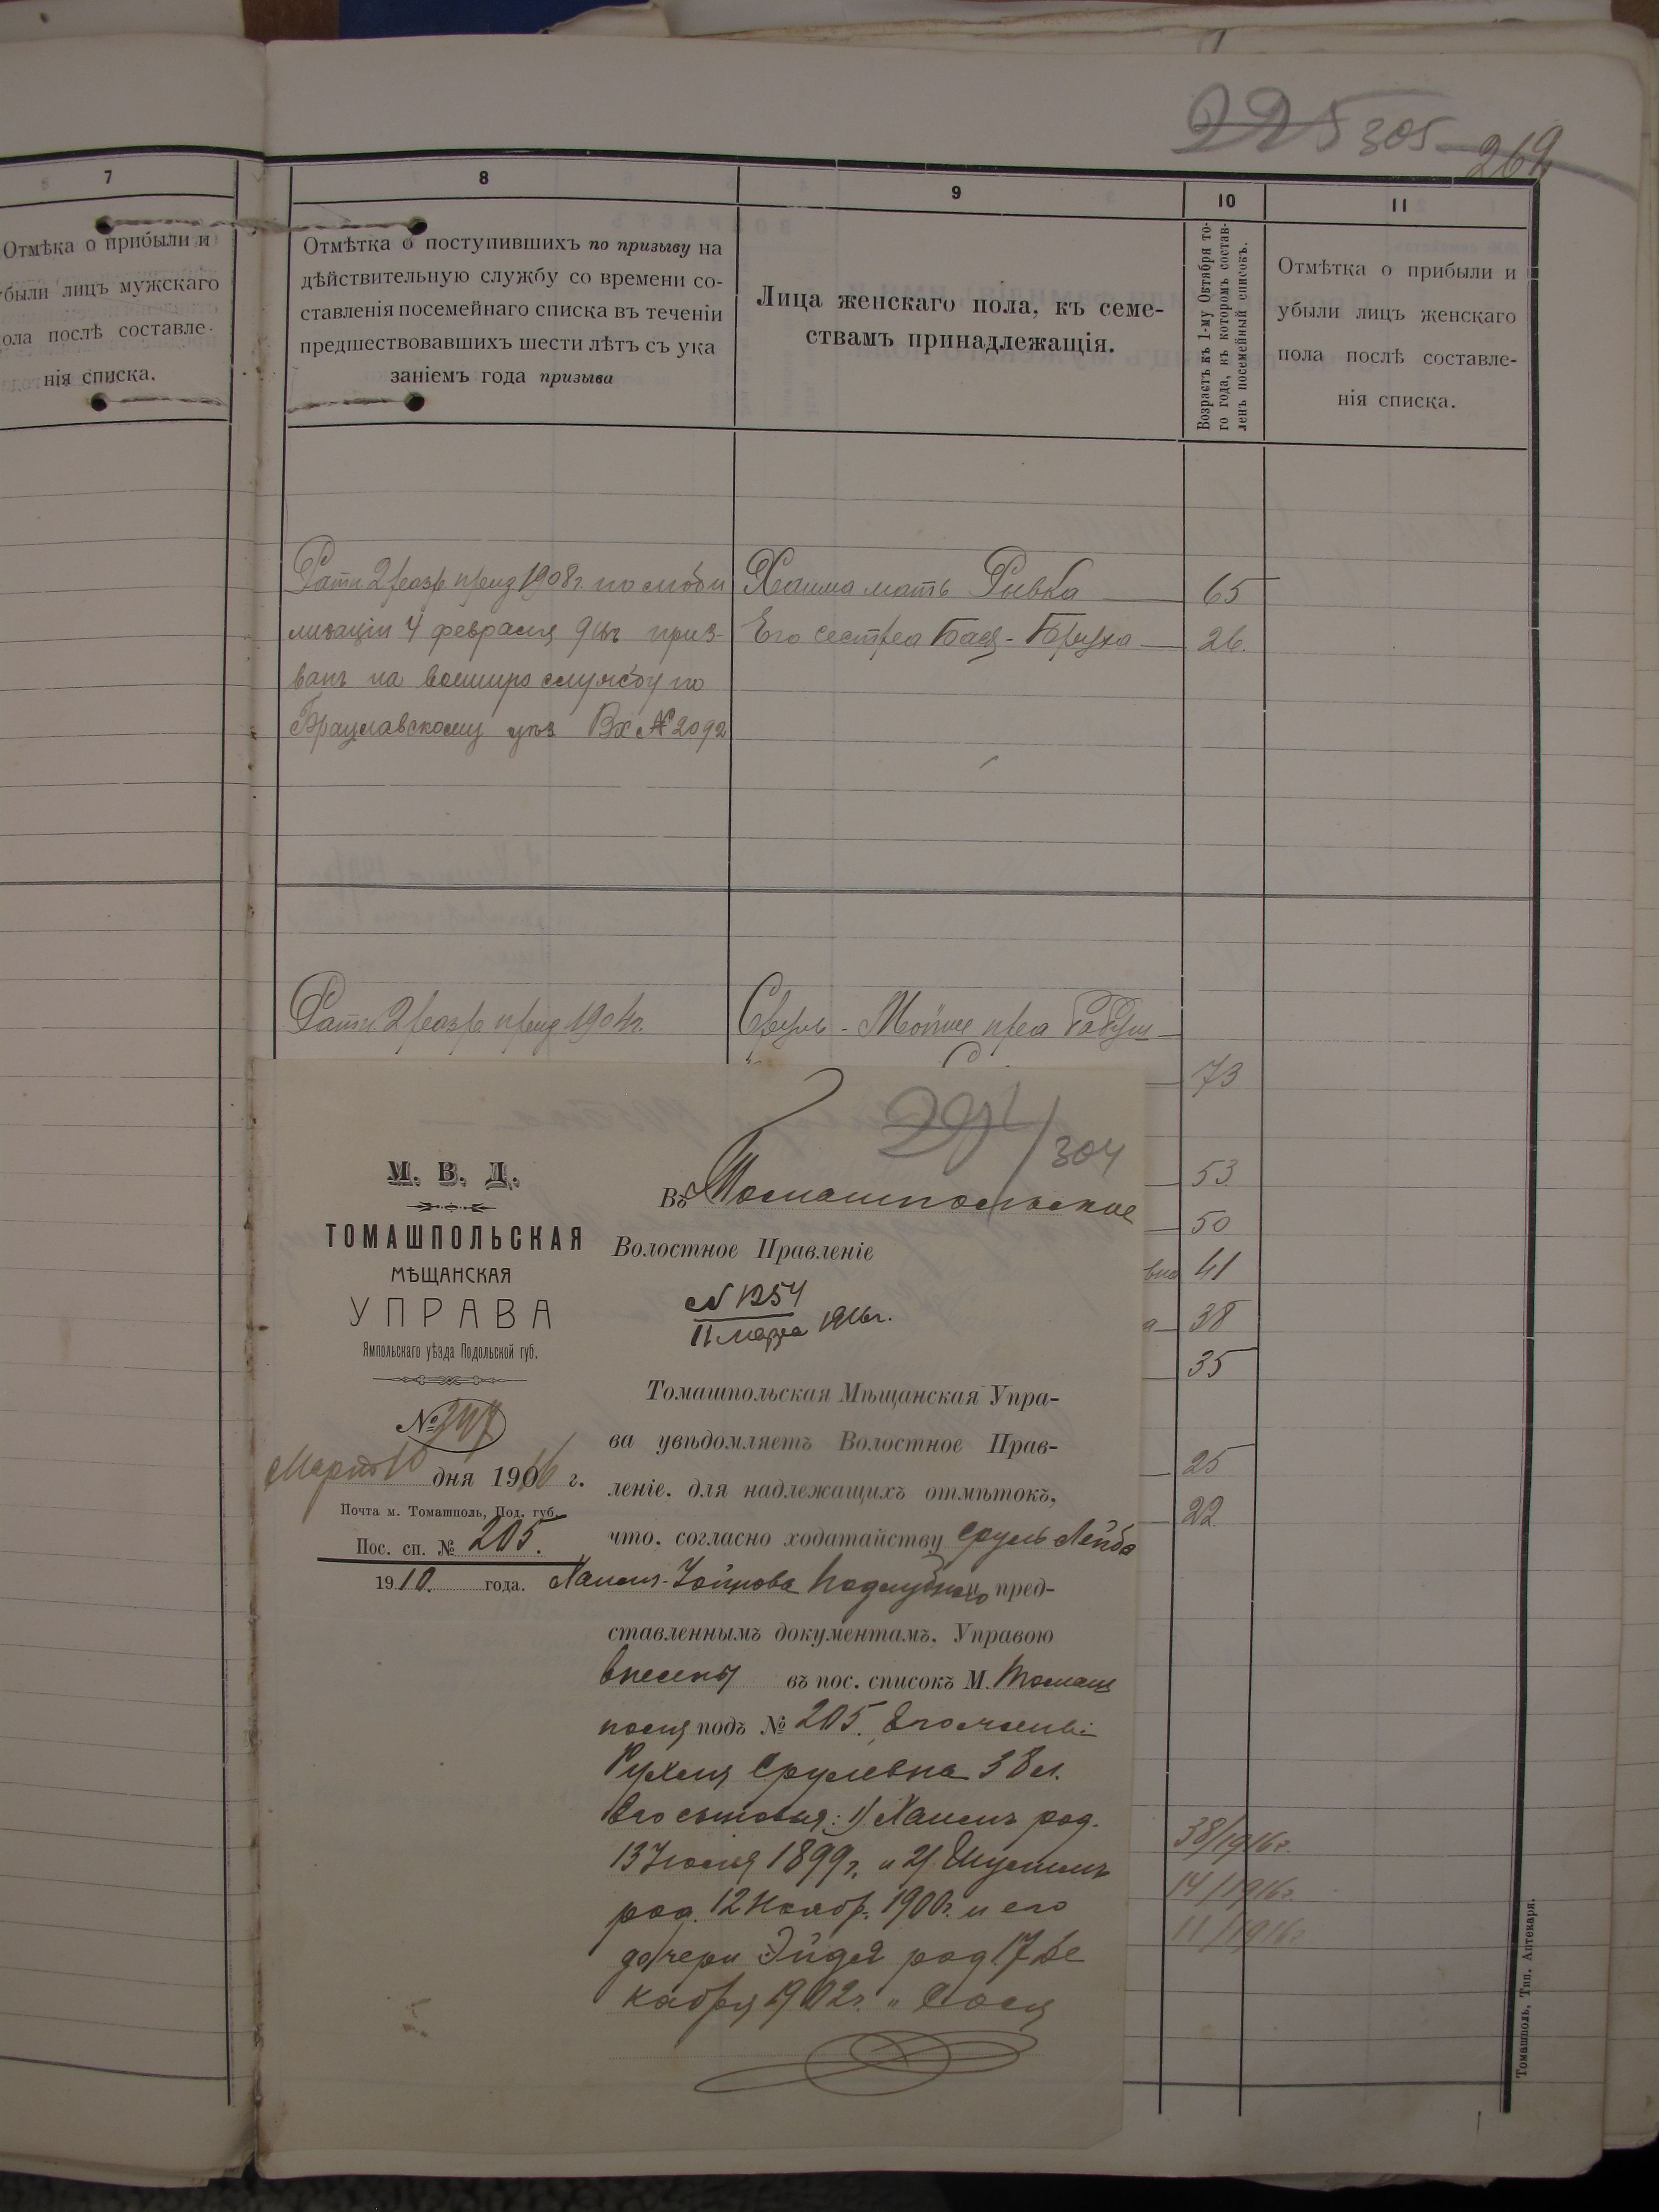 225 305 262
7
Отмѣка о прибыли и
были лицъ мужскаго
ола послѣ составле-
нія списка.
8
Отмѣтка о поступившихъ по призыву на
дѣйствительную службу со времени со-
ставленія посемейнаго списка въ теченіи
предшествовавшихъ шести лѣтъ съ ука
заніемъ года призыва
9
Лица женскаго пола, къ семе-
ствамъ принадлежащія.
10
Возрастъ къ 1-му Октября то-
го года, къ которомъ состав-
ленъ посемейный списокъ.
11
Отмѣтка о прибыли и
убыли лицъ женскаго
пола послѣ составле-
нія списка.
Ратн 2 разр приз 1908 г. по моби
лизаціи 4 февраля приз-
ванъ на военную службу по
Брацлавскому уѣз Вх № 2092
Хаима мать Рывка 65
Его сестра Бася-Бруха 26.
Ратн 2 разр приз 1904 г.
Сруль-Мойше
73
53
50
вна 41
а 38
35
25
22
38/1916 г.
14/1916 г.
11/1916 г.
291/304
М. В. Д.
ТОМАШПОЛЬСКАЯ
МѢЩАНСКАЯ
УПРАВА
Ямпольскаго уѣзда Подольской губ.
№ 247
Марта 10 дня 1916 г.
Почта м. Томашполь, Под. губ.
Пос. сп. № 205.
1910. года.
Въ Томашпольское
Волостное Правленіе
№ 1254
11 марта 1916 г.
Томашпольская Мѣщанская Упра-
ва увѣдомляетъ Волостное Прав-
леніе. для надлежащихъ отмѣтокъ,
что. согласно ходатайству Сруль Лейба
Хаимъ-Іойнова Подлубнаго пред-
ставленнымъ документамъ. Управою
внесены въ пос. списокъ М. Томаш
поля подъ № 205. Его жена:
Рухля Срулевна 38 л.
Его сыновья: 1) Хаимъ род.
13 Іюля 1899 г. и 2) Шулимъ
род. 12 Ноябр. 1900 г. и его
дочери Эйдя род. 17 Де
кабря 1902 г. "
Томашполь, Тип. Аптекаря.